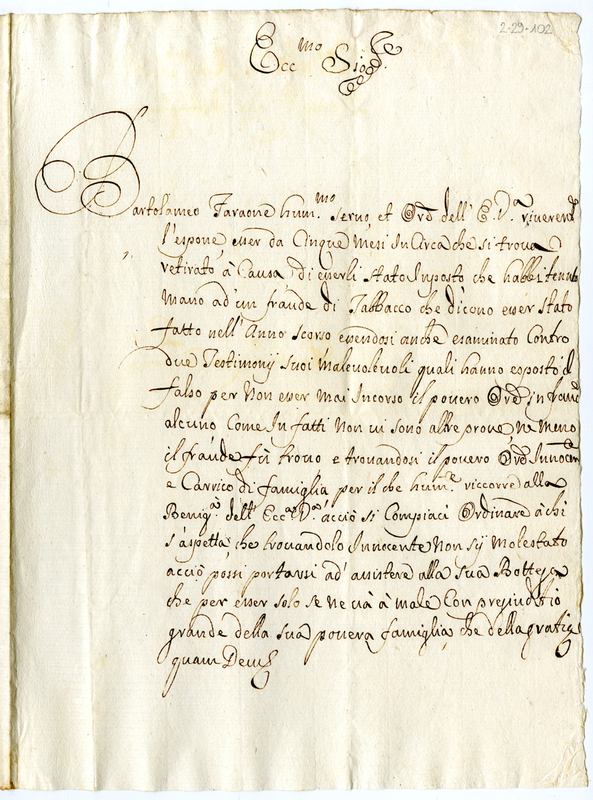 2-29-102
Ecc.mo Sig.re
Bartolameo Faraone hum.mo servo, et Ore dell' E.V.a riverent.e
l'espone, esser da Cinque Mesi In Circa che si trova
retirato, à Causa, di eserli stato Inposto che habbi tenuto
mano ad' un fraude di Tabbacco che dicono esser stato
fatto nell' Anno scorso essendosi anche esaminato Contro
due Testimonij suoi malevolevoli quali hanno esposto il
falso per Non esser Mai Incorso il povero Ore in fraude
alcuno Come In fatti Non vi sono altre prove, ne meno
il fraude fù trovo e trovandosi il povero Ore Innocente
e Carrico di famiglia per il che hum.e riccorre alla
Benig.a dell' Ecc.a V.a acciò si Compiaci Ordinare à chi
s'aspetta, che trovandolo Innocente Non sij Molestato
acciò possi portarsi ad' assistere alla sua Bottega
che per esser solo se ne và à male Con prejuditio
grande della sua povera famiglia, che della gratia
quam Deus